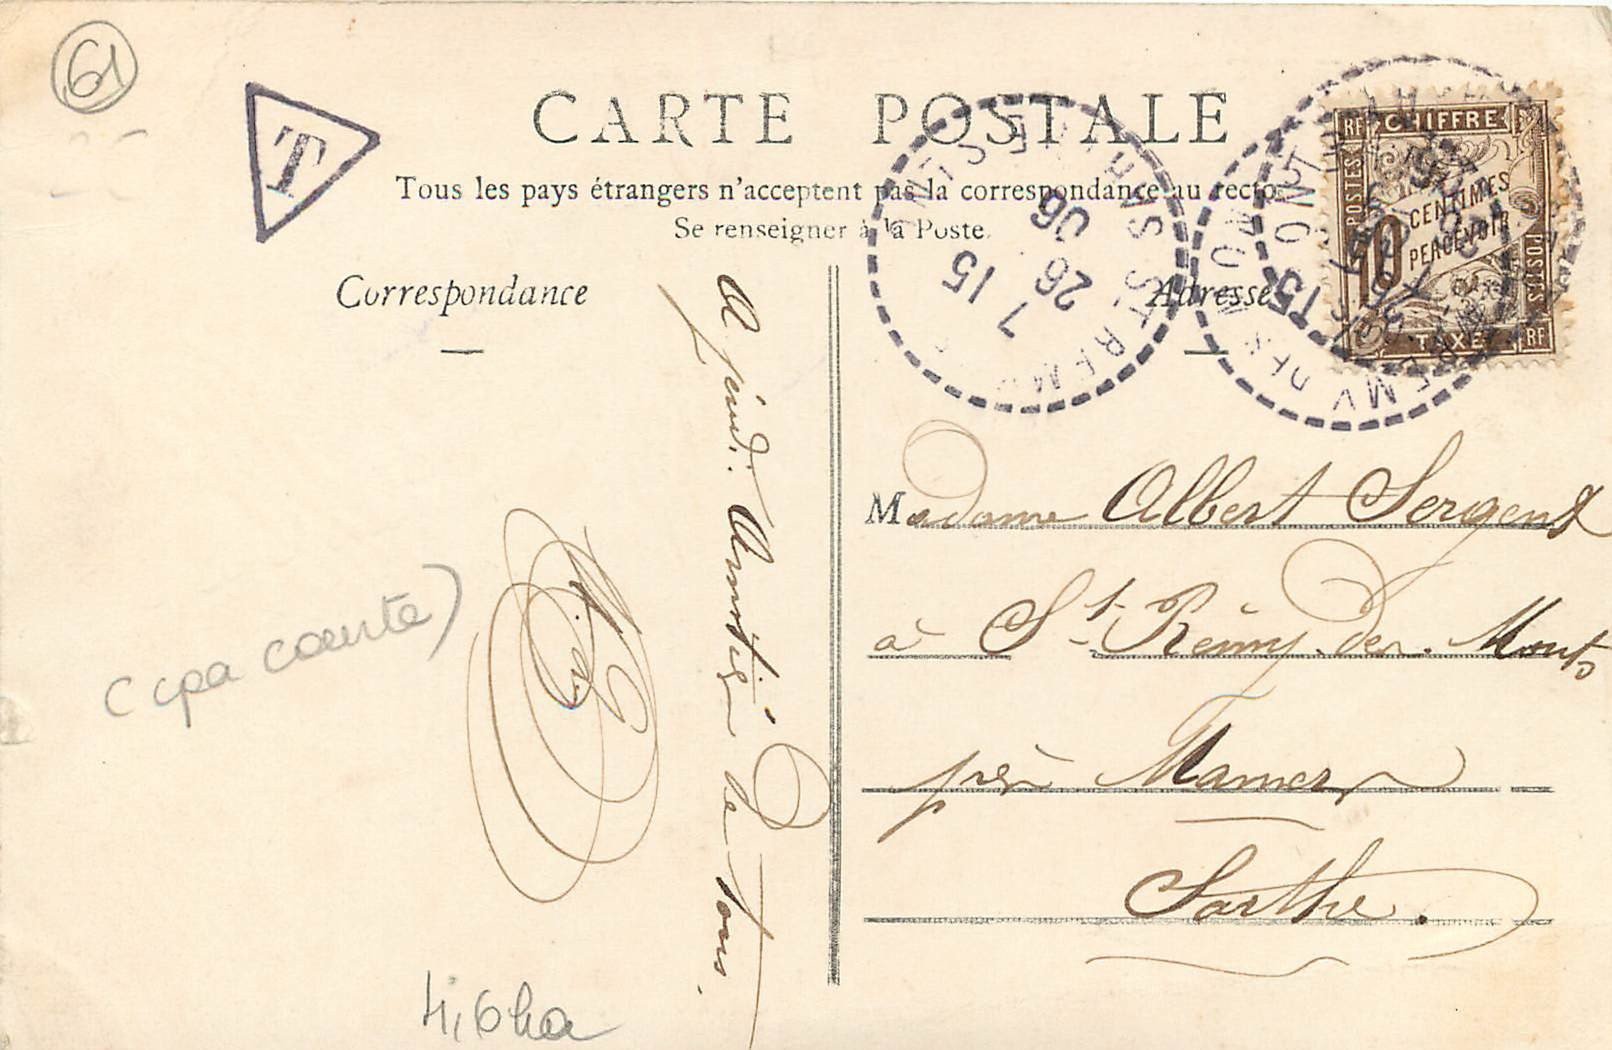 61
T
CARTE POSTALE
Tous les pays étrangers n'acceptent pas la correspondance au recto
Se renseigner à la Poste.
Correspondance
Adresse
RF CHIFFRE
POSTES
10 CENTIMES
PERCEVOIR
POSTES
TAXE RF
7 15
26
06
ST REMY DES MONTS
A jeudi. Amitiés de tous.
Madame Albert Sergent
à St. Rémy des Monts
près Mamers
Sarthe.
(cpa courte)